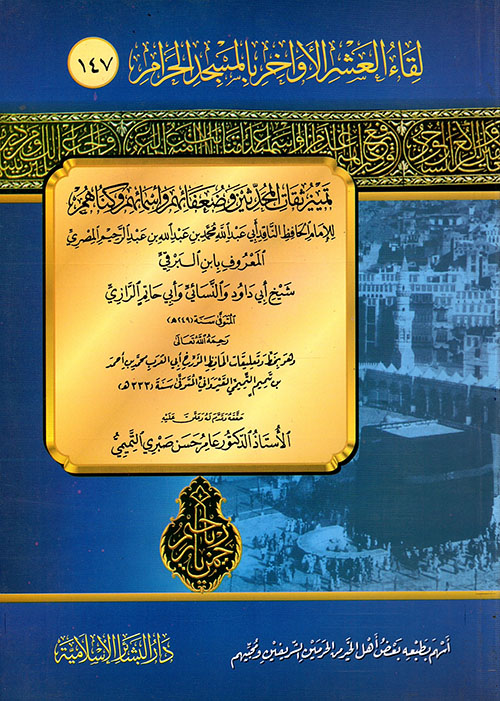 لِقَاءُ العَشْرِ الأَوَاخِرِ بِالمَسْجِدِ الحَرَامِ
١٤٧
تمييز ثقات المحدثين وضعفائهم وأسمائهم وكناهم
للإمام الحافظ الناقد أبي عبد الله محمد بن عبد الله بن عبد الرحيم المصري
المعروف بابن البرقي
شيخ أبي داود والنسائي وأبي حاتم الرازي
المتوفى سنة (٢٤٩هـ)
رحمه الله تعالى
وهو بخط وتعليقات الحافظ المؤرخ أبي العرب محمد بن أحمد
بن تميم التميمي القيرواني المتوفى سنة (٣٣٣هـ)
حققه وقدم له وعلق عليه
الأستاذ الدكتور عامر حسن صبري التميمي
أسهم بطبعه بعض أهل الخير من الحرمين الشريفين ومحبيهم
دار البشائر الإسلامية